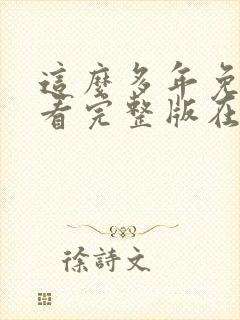 這麼多年免
看完整版在
徐詩文